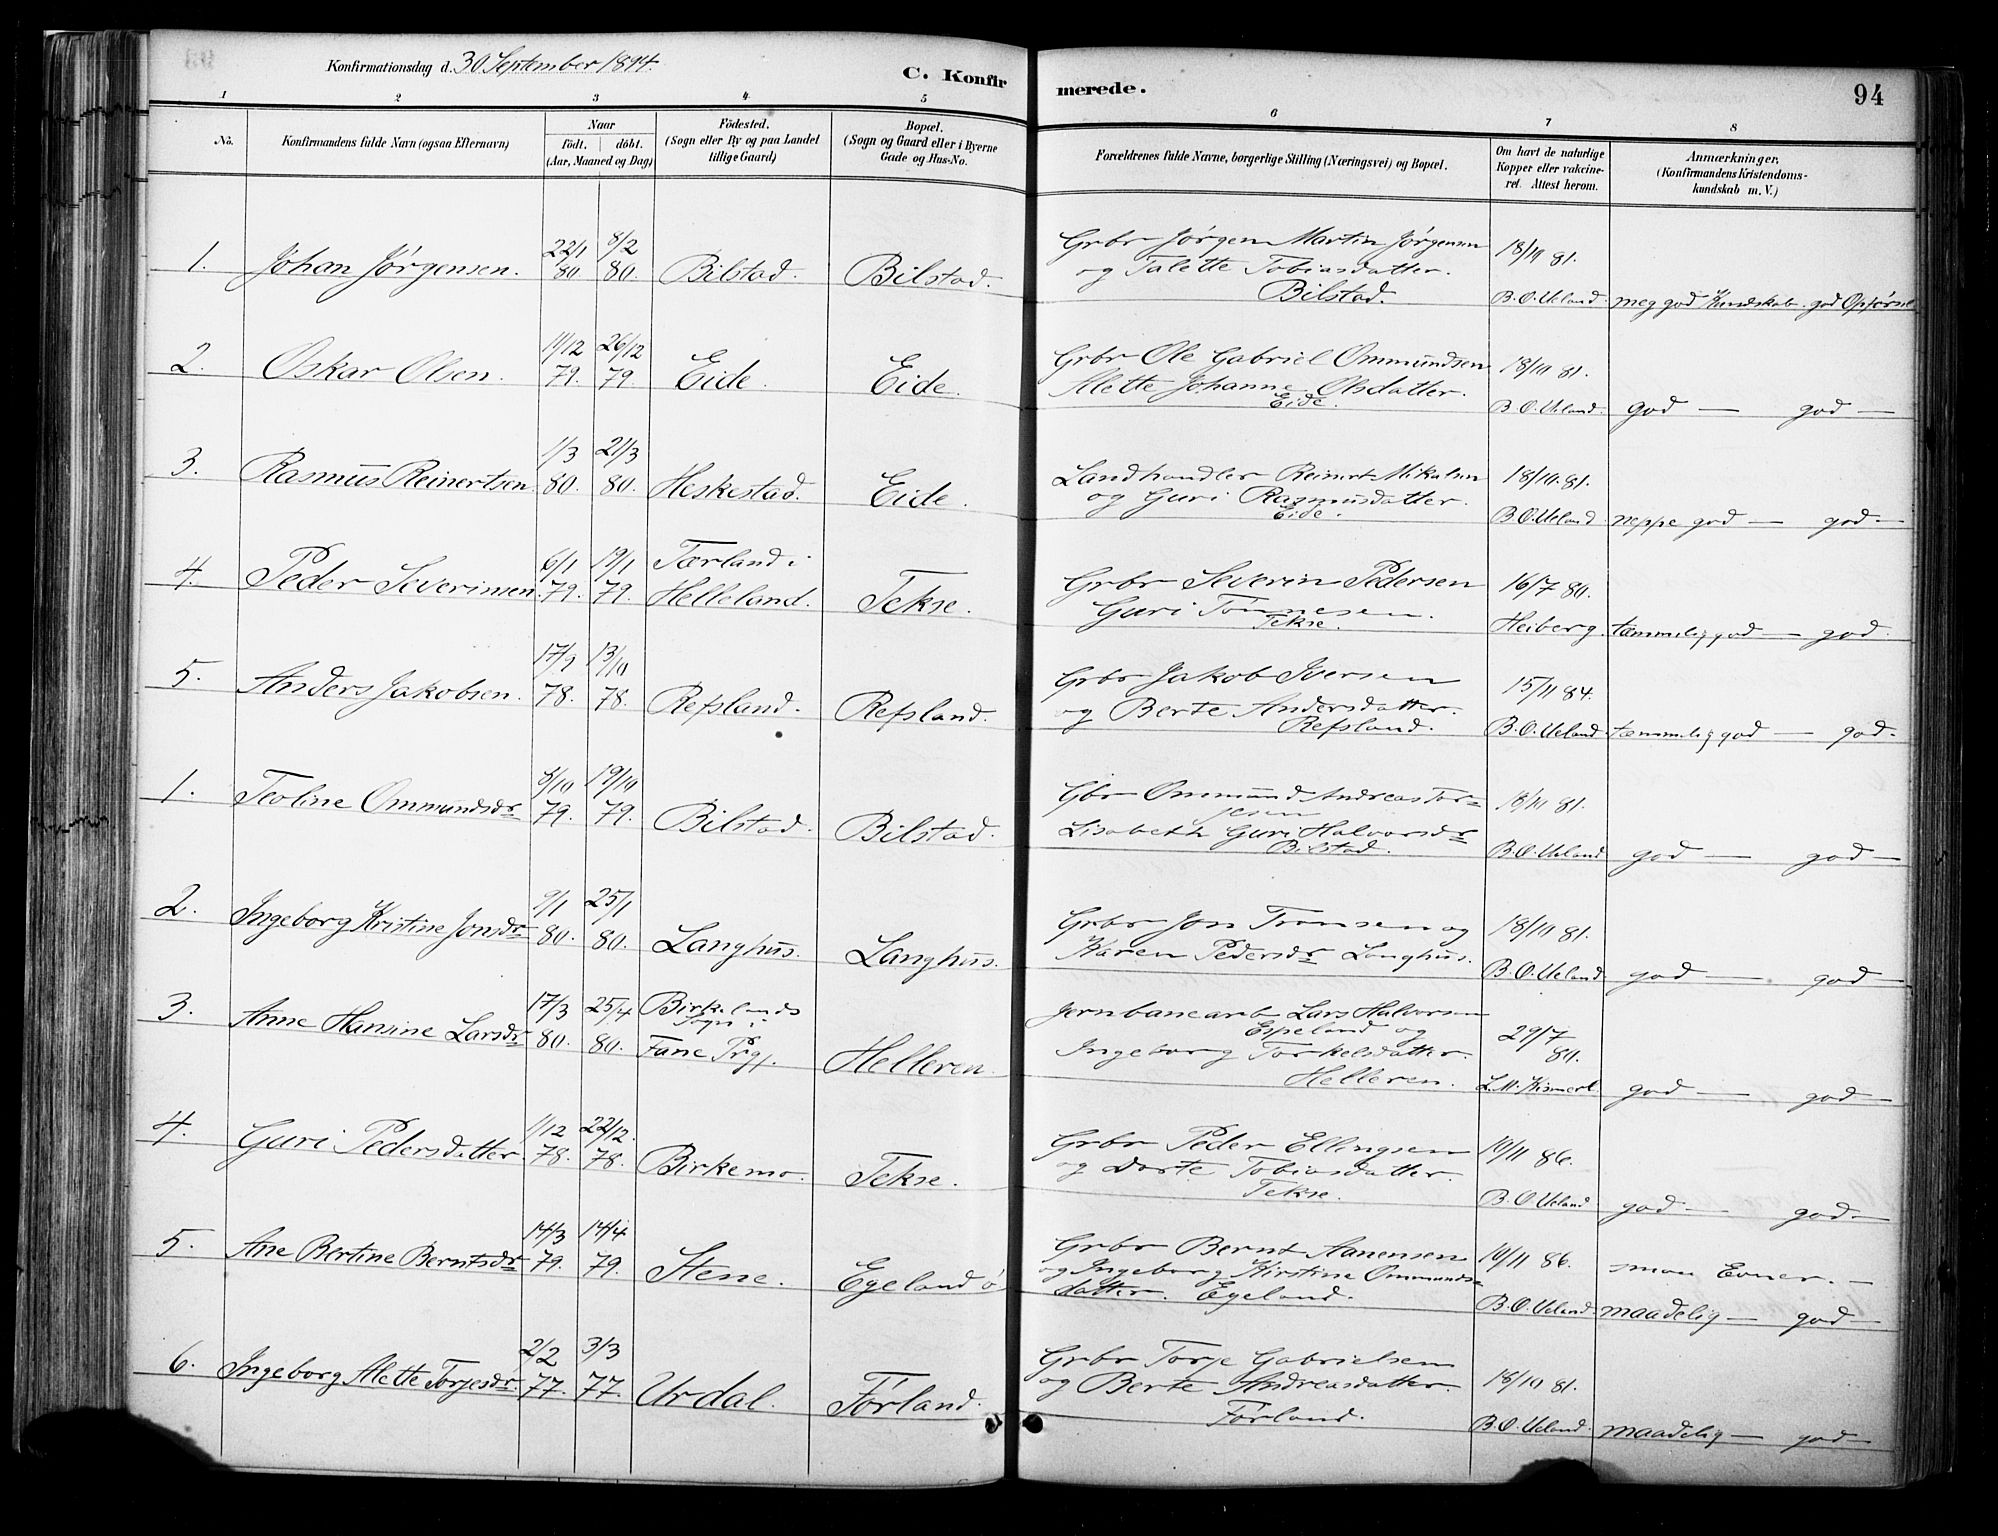 Konfirmationsdag d. 30 September 1894.
C. Konfirmerede.
94
1 2 3 4 5 6 7 8
No.
Konfirmandens fulde Navn (ogsaa Efternavn)
Naar
födt. döbt.
(Aar, Maaned og Dag)
Födested.
(Sogn eller By og paa Landet tillige Gaard)
Bopæl.
(Sogn og Gaard eller i Byerne Gade og Hus-No.
Forældrenes fulde Navne, borgerlige Stilling (Næringsvei) og Bopæl.
Om havt de naturlige Kopper eller vakcineret. Attest herom.
Anmærkninger,
(Konfirmandens Kristendomskundskab m. V.)
1. Johan Jørgensen. 22/1 80 8/2 80. Bilstad. Bilstad.
Grbr Jørgen Martin Jørgensen
og Talette Tobiasdatter.
Bilstad.
18/10 81.
B. O. Ueland. meg god Kundskab. god Opførsel
2. Oskar Olsen. 11/12 79. 26/12 79. Eide. Eide.
Grbr Ole Gabriel Ommundsen
Alette Johanne Olsdatter.
Eide.
18/10 81.
B. O. Ueland. god — god —
3. Rasmus Reinertsen. 1/3 80. 21/3 80. Heskestad. Eide.
Landhandler Reinert Mikalsen
og Guri Rasmusdatter.
Eide.
18/10. 81.
B. O. Ueland neppe god — god —
4. Peder Severinsen 6/1 79. 19/1 79. Tærland i Helleland. Tekse.
Grbr Severin Pedersen
Guri Tønnesen.
Tekse.
16/7 80.
Heiberg. tæmmelig god — god.
5. Anders Jakobsen. 17/9 78. 13/10 78. Refsland. Refsland.
Grbr Jakob Iversen
og Berte Andersdatter.
Refsland.
15/11 84.
B. O. Ueland tæmmelig god — god.
1. Teoline Ommundsdr 8/10 79. 19/10 79. Bilstad. Bilstad.
Gbr Ommund Andreas Torjesen
Lisabeth Guri Halvorsdr
Bilstad.
18/11 81.
B. O. Ueland god — god —
2. Ingeborg Kristine Jonsdr 9/1 80. 25/1 80. Langhus. Langhus.
Grbr Jon Tronsen og
Karen Pedersdr Langhus.
18/10 81.
B. O. Ueland god — god —
3. Anne Hansine Larsdr 17/3 80. 25/4 80. Birkelands Sogn i Fane Prgj. Helleren.
Jernbanearb Lars Halvorsen
Espeland og
Ingeborg Torkelsdatter.
Helleren.
29/7 80.
god — god —
4. Guri Pedersdatter 1/12 78. 22/12. 78. Birkemo. Tekse.
Grbr Peder Ellingsen
og Dorte Tobiasdatter.
Tekse.
10/11 86.
B. O. Ueland god — god —
5. Ane Bertine Berntsdr 14/3 79. 14/4 79. Stene. Egeland ø
Grbr Bernt Aanensen
og Ingeborg Kirstine Ommundsdatter. Egeland.
10/11 86. smaa Evner. —
B. O. Ueland. maadelig — god —
6. Ingeborg Alette Torjesdr. 2/2 77. 3/3 77. Urdal. Førland.
Grbr Torje Gabrielsen
og Berte Andreasdatter.
Førland.
18/10 81.
B. O. Ueland. maadelig — god —